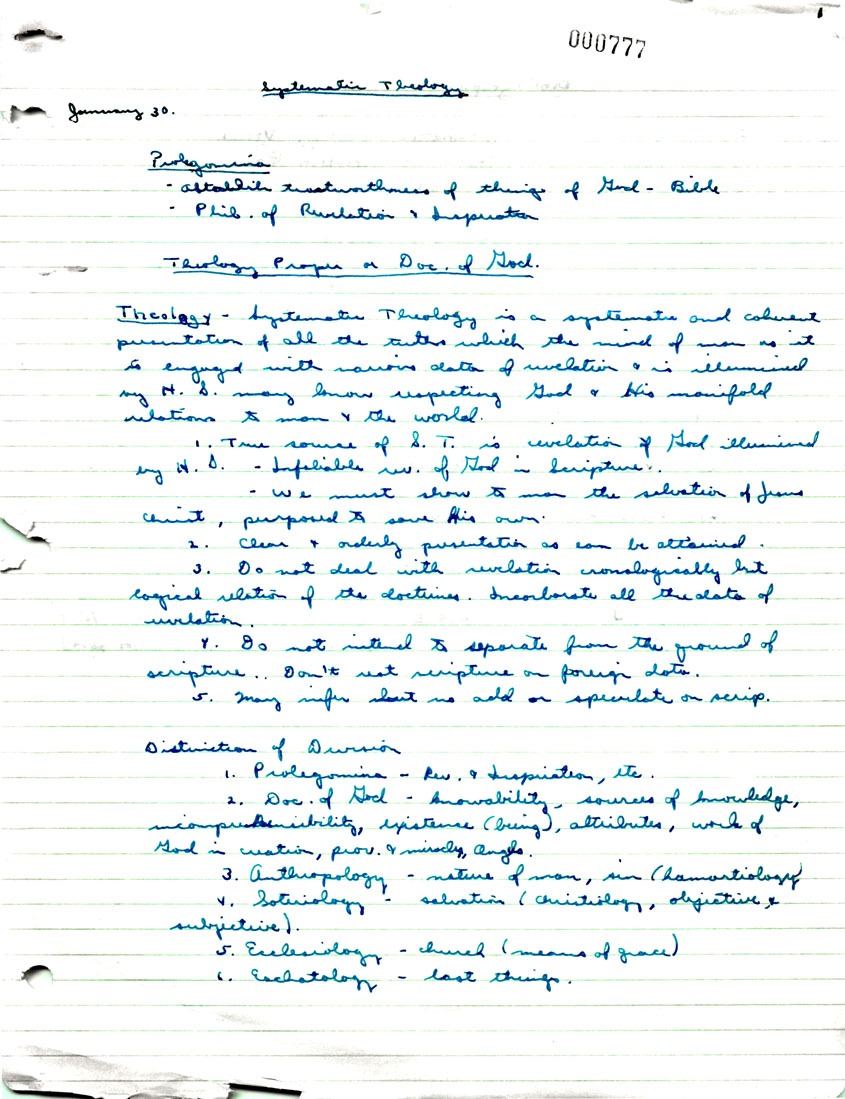 1
000777
Systematic Theology
January 30.
Prolegomina
- establish trustworthness of things of God - Bible
- Phil. of Revelation & Inspiration
Theology Proper or Doc. of God.
Theology - Systematic Theology is a systematic and coherent
presentation of all the truths which the mind of man as it
is engaged with various data of revelation & is illumined
by H. S. may know respecting God & His manifold
relations to man & the world.
1. True source of S. T. is revelation of God illumined
by H. S. - Infallable rev. of God in Scripture..
- We must show to man the salvation of Jesus
Christ, purposed to save His own.
2. Clear & orderly presentation as can be attained.
3. Do not deal with revelation cronologically but
logical relation of the doctrines. Incorborate all the data of
revelation.
4. Do not intend to separate from the ground of
scripture.. Don't rest scripture on foreign data.
5. May infer but no add or speculate on scrip.
Distinction of Division
1. Prolegomina - Rev. & Inspiration, etc.
2. Doc. of God - knowability, sources of knowledge,
incomprehensibility, existense (being), attributes, work of
God in creation, prov. & miracles, Angels.
3. Anthropology - nature of man, sin (hamartiology)
4. Soteriology - salvation (christiology, objective &
subjective).
5. Ecclesiology - church (means of grace)
6. Eschatology - last things.